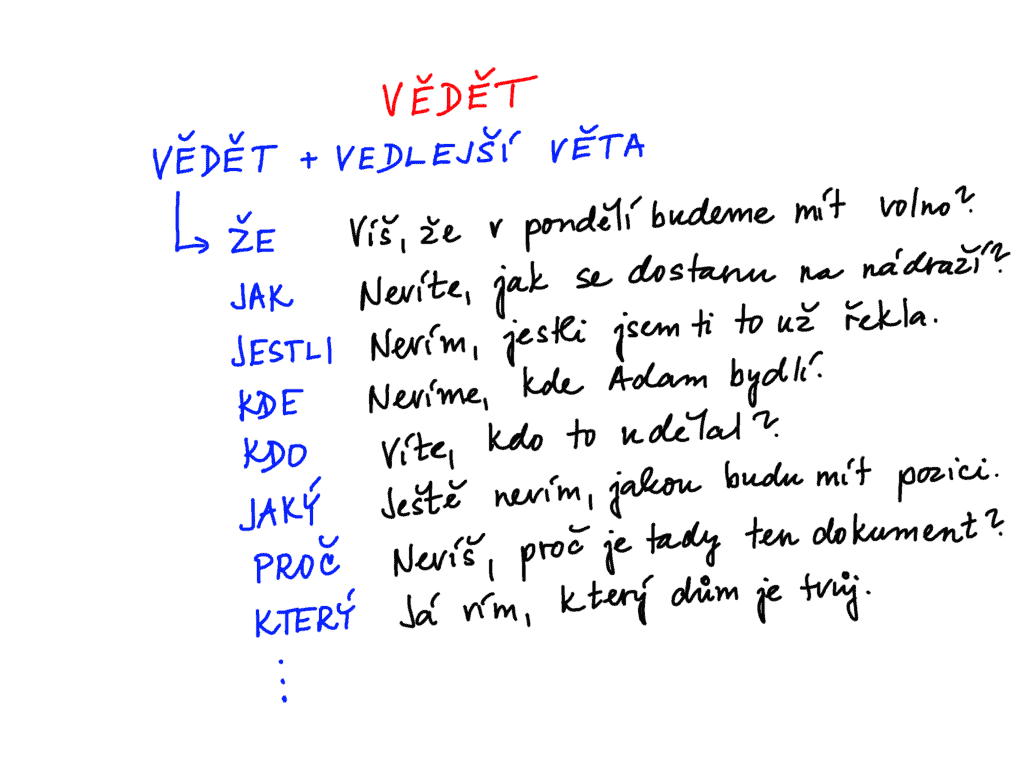 VĚDĚT
VĚDĚT + VEDLEJŠÍ VĚTA
ŽE Víš, že v pondělí budeme mít volno?
JAK Nevíte, jak se dostanu na nádraží?
JESTLI Nevím, jestli jsem ti to už řekla.
KDE Nevíme, kde Adam bydlí.
KDO Víte, kdo to udělal?
JAKÝ Ještě nevím, jakou budu mít pozici.
PROČ Nevíš, proč je tady ten dokument?
KTERÝ Já vím, který dům je tvůj.